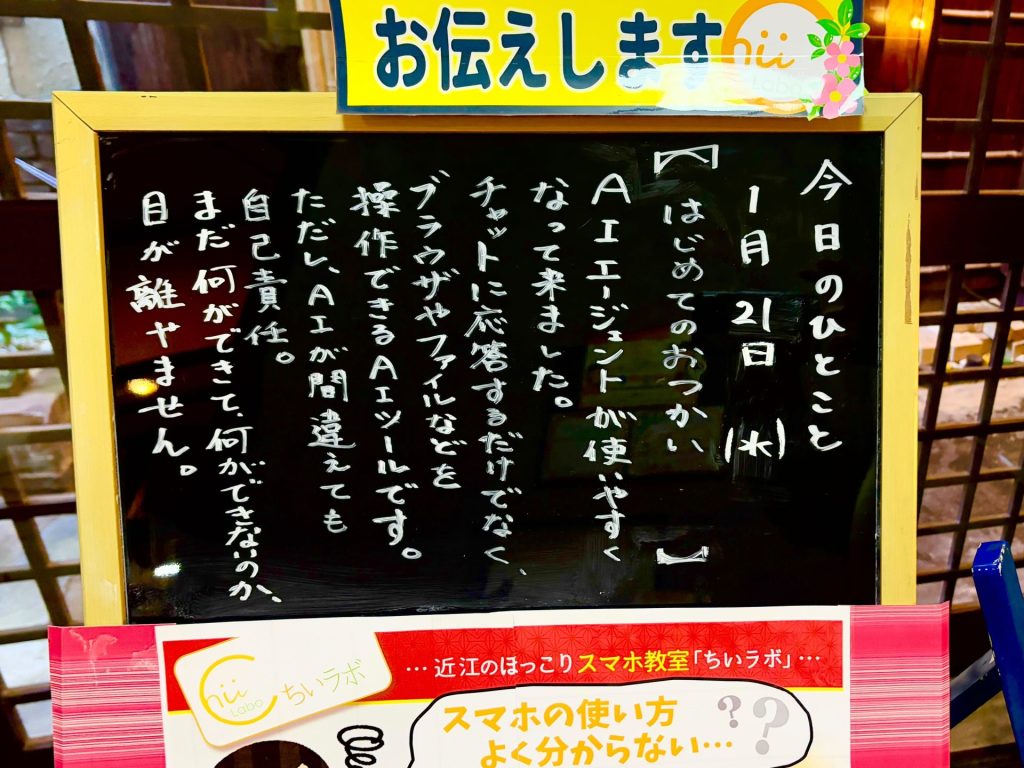 お伝えします
hii
Labo
今日のひとこと
1月21日(水)
【はじめてのおつかい】
AIエージェントが使いやすく
なって来ました。
チャットに応答するだけでなく、
ブラウザやファイルなどを
操作できるAIツールです。
ただし、AIが間違えても
自己責任。
まだ何ができて、何ができないのか、
目が離やません。
Chii
Labo
ちいラボ
…近江のほっこりスマホ教室「ちいラボ」…
スマホの使い方
よく分からない…
??